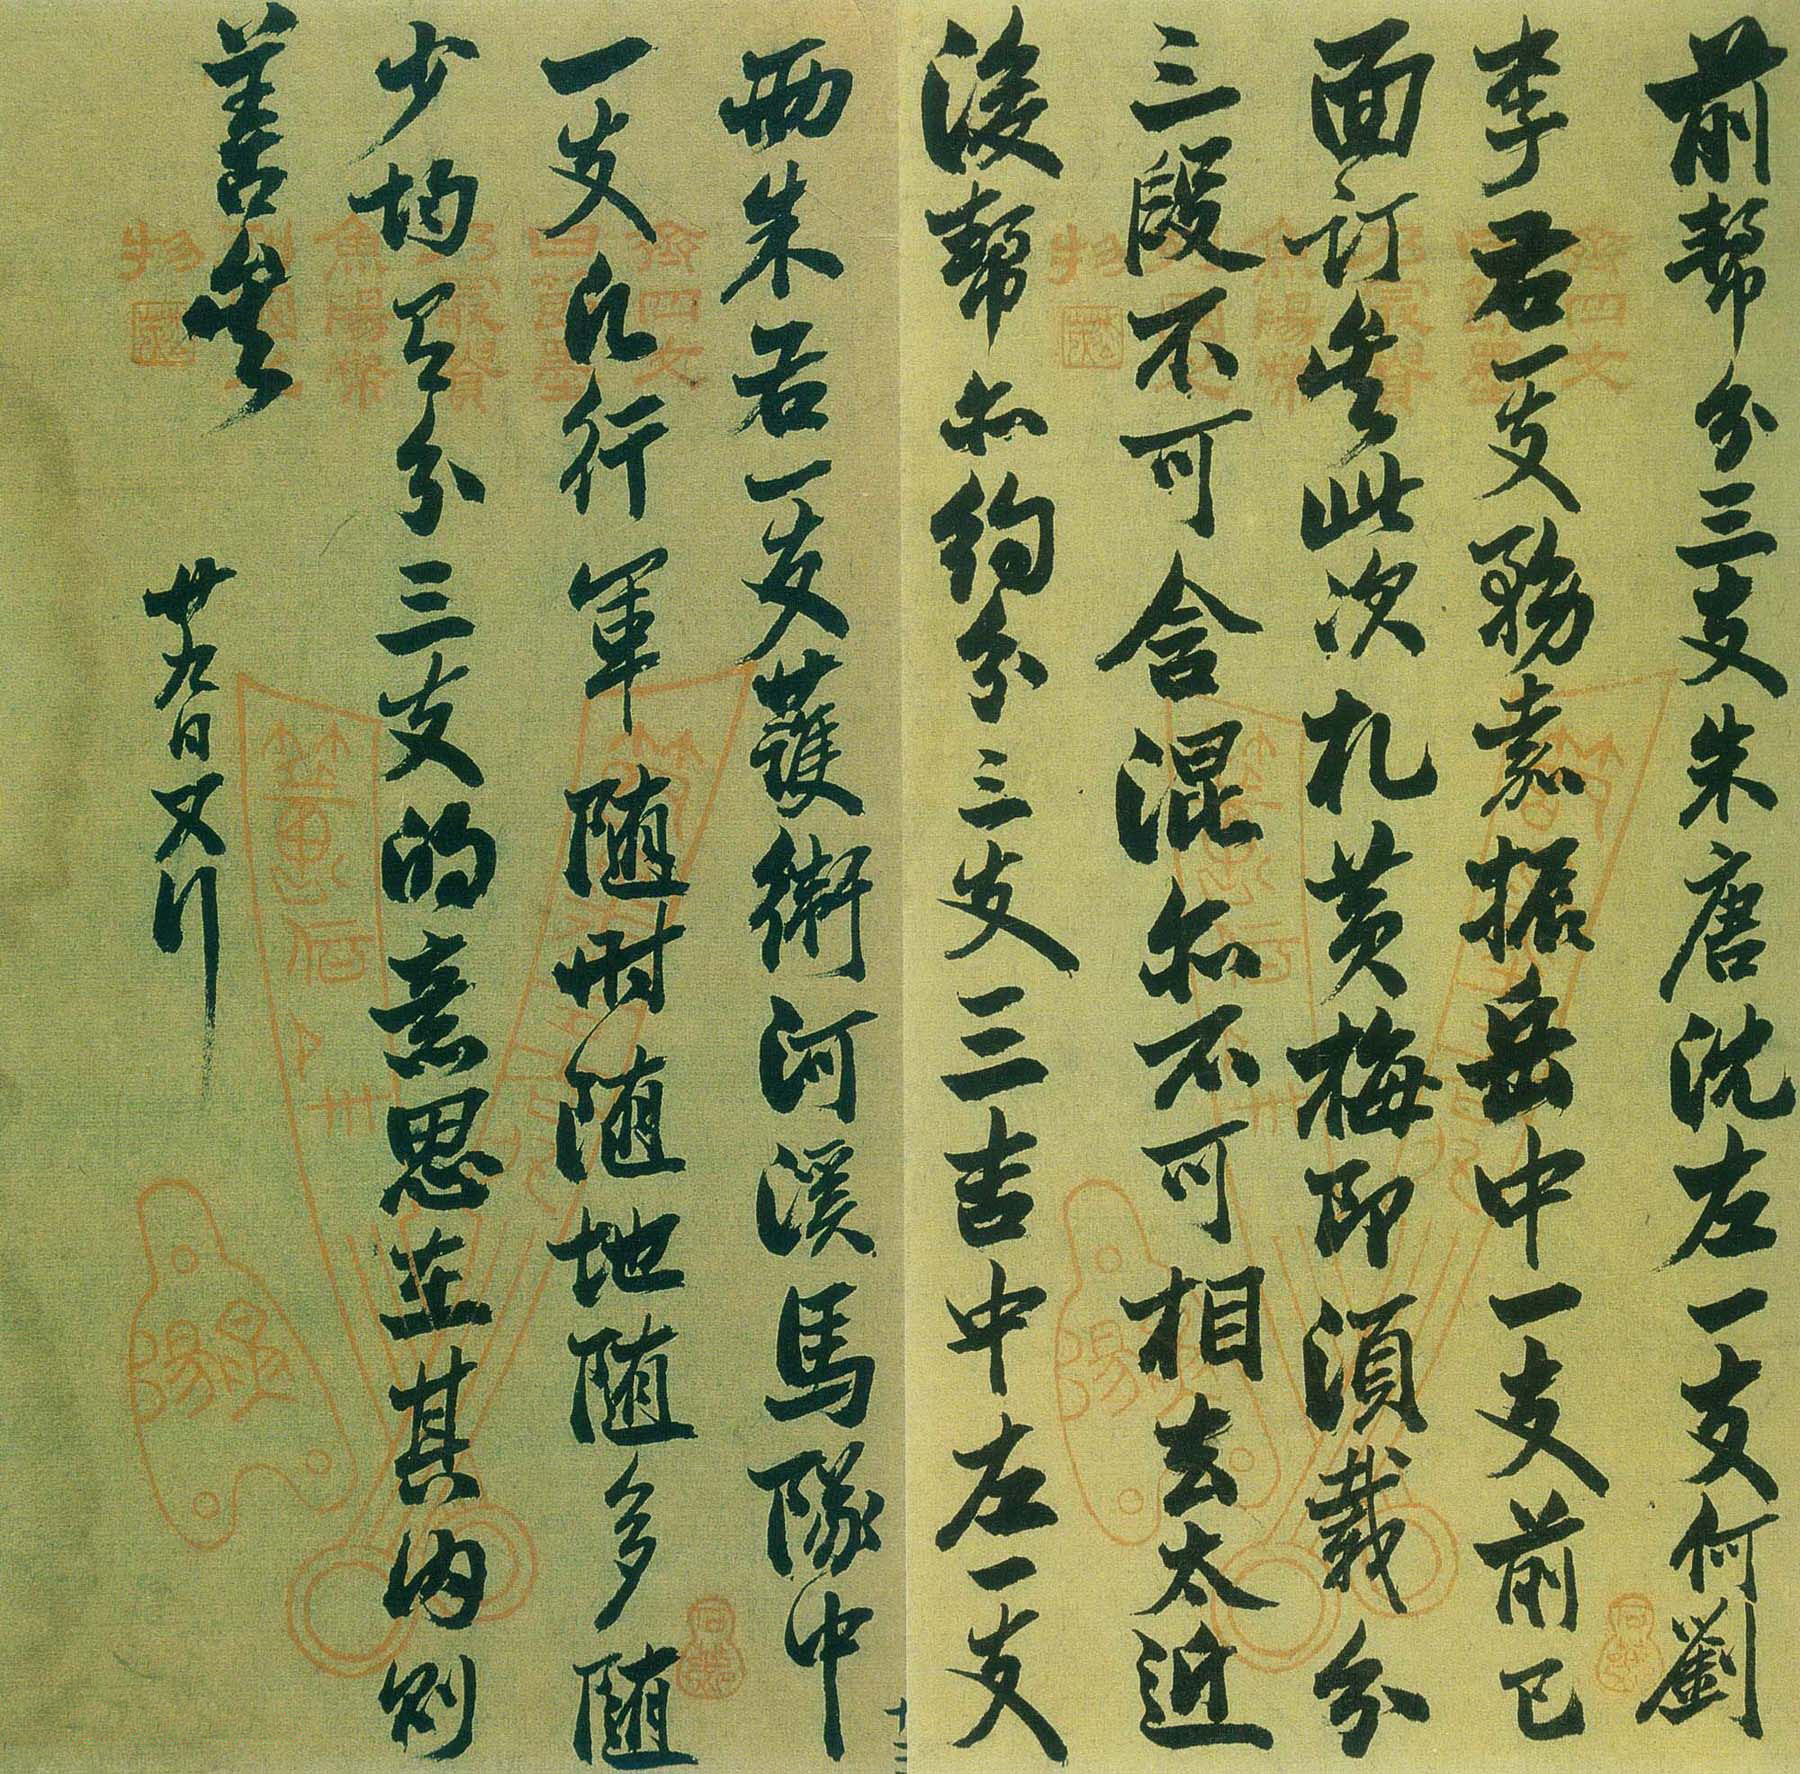 前幫分三支朱唐沈左一支何劉
李君一支務嘉振岳中一支前已
面訂矣此次札黃梅即須截分
三段不可含混亦不可相去太近
後幫亦約分三支三吉中左一支
兩朱君一支護衛河溪馬隊中
一支凡行軍随時随地随多随
少均有分三支的意思在其內則
善矣
廿九日又行